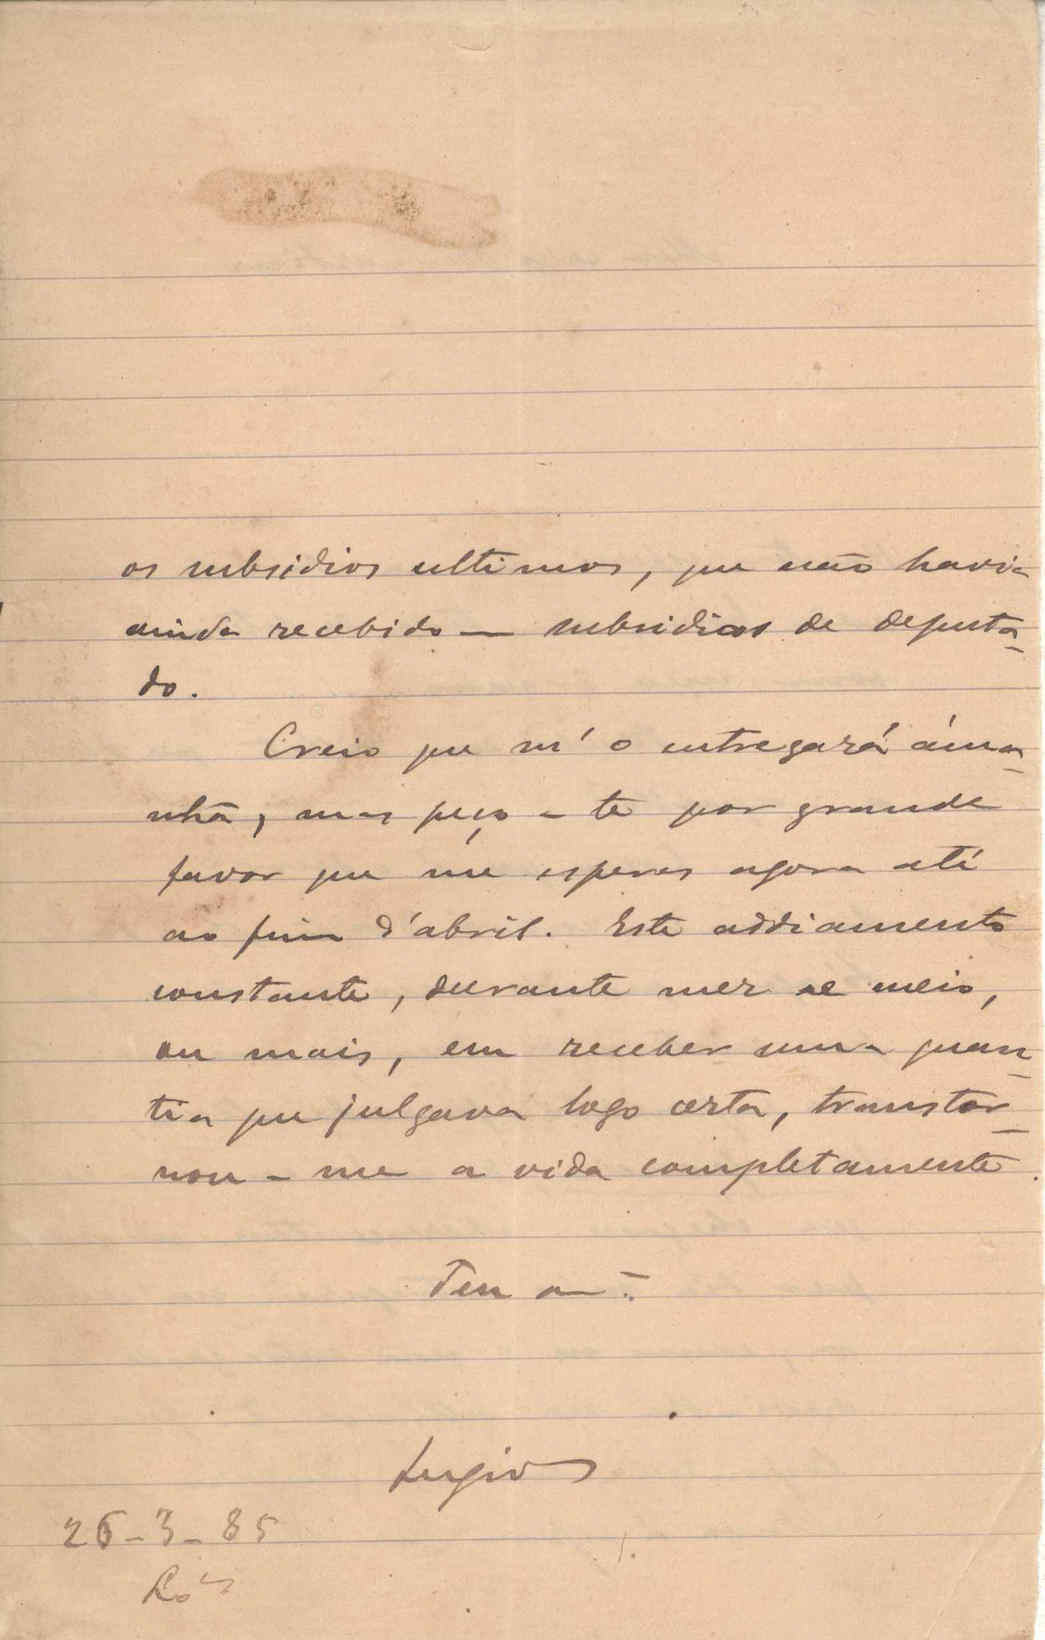 os subsidios ultimos, que não havia
ainda recebido — subsidios de deputa-
do.
Creio que m'o entregará áma-
nhã, mas peço-te por grande
favor que me esperes agora até
ao fim d'abril. Este addiamento
constante, durante mez e meio,
ou mais, em receber uma quan-
tia que julgava logo certa, transtor-
nou-me a vida completamente.
Teu am.º
26-3-85